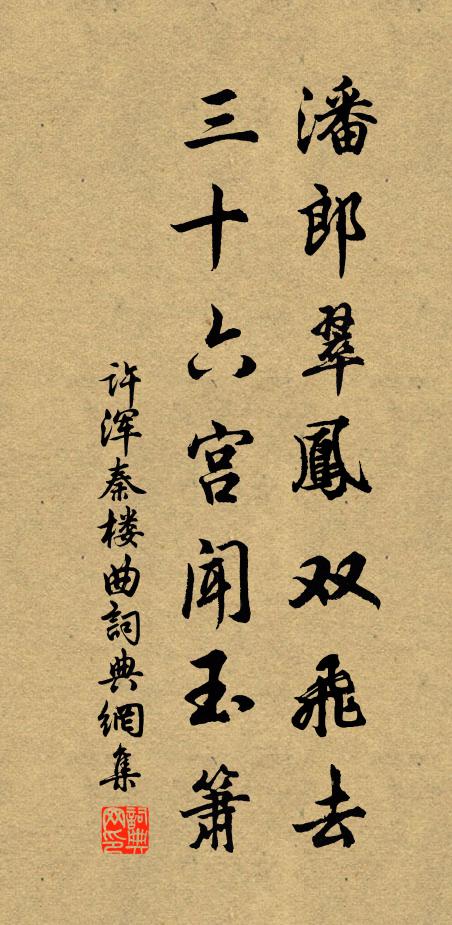 潘郎翠鳳双飛去
三十六宫闻玉箫
许浑秦楼曲詞典網集
詞典网印